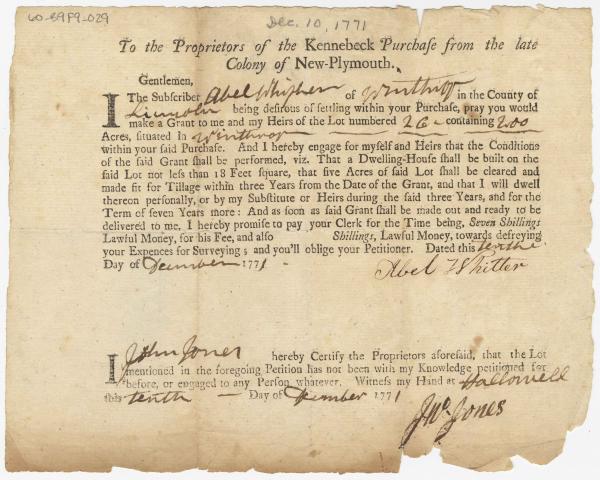 60-89P9-029
Dec. 10, 1771
To the Proprietors of the Kennebeck Purchase from the late
Colony of New-Plymouth.
Gentlemen,
The Subscriber Abel Whither of Winthrop in the County of
Lincoln being desirous of settling within your Purchase, pray you would
make a Grant to me and my Heirs of the Lot numbered 26 - containing 200
Acres, situated In Winthrop
within your said Purchase. And I hereby engage for myself and Heirs that the Conditions
of the said Grant shall be performed, viz. That a Dwelling-House shall be built on the
said Lot not less than 18 Feet square, that five Acres of said Lot shall be cleared and
made fit for Tillage within three Years from the Date of the Grant, and that I will dwell
thereon personally, or by my Substitute or Heirs during the said three Years, and for the
Term of seven Years more: And as soon as said Grant shall be made out and ready to be
delivered to me, I hereby promise to pay your Clerk for the Time being, Seven Shillings
Lawful Money, for his Fee, and also Shillings, Lawful Money, towards defreying
your Expences for Surveying; and you'll oblige your Petitioner. Dated this tenthe
Day of December 1771 -
Abel Whitter
I John Jones hereby Certify the Proprietors aforesaid, that the Lot
mentioned in the foregoing Petition has not been with my Knowledge petitioned for
before, or engaged to any Person whatever. Witness my Hand at Hallowell
this tenth - Day of December 1771
Jno. Jones